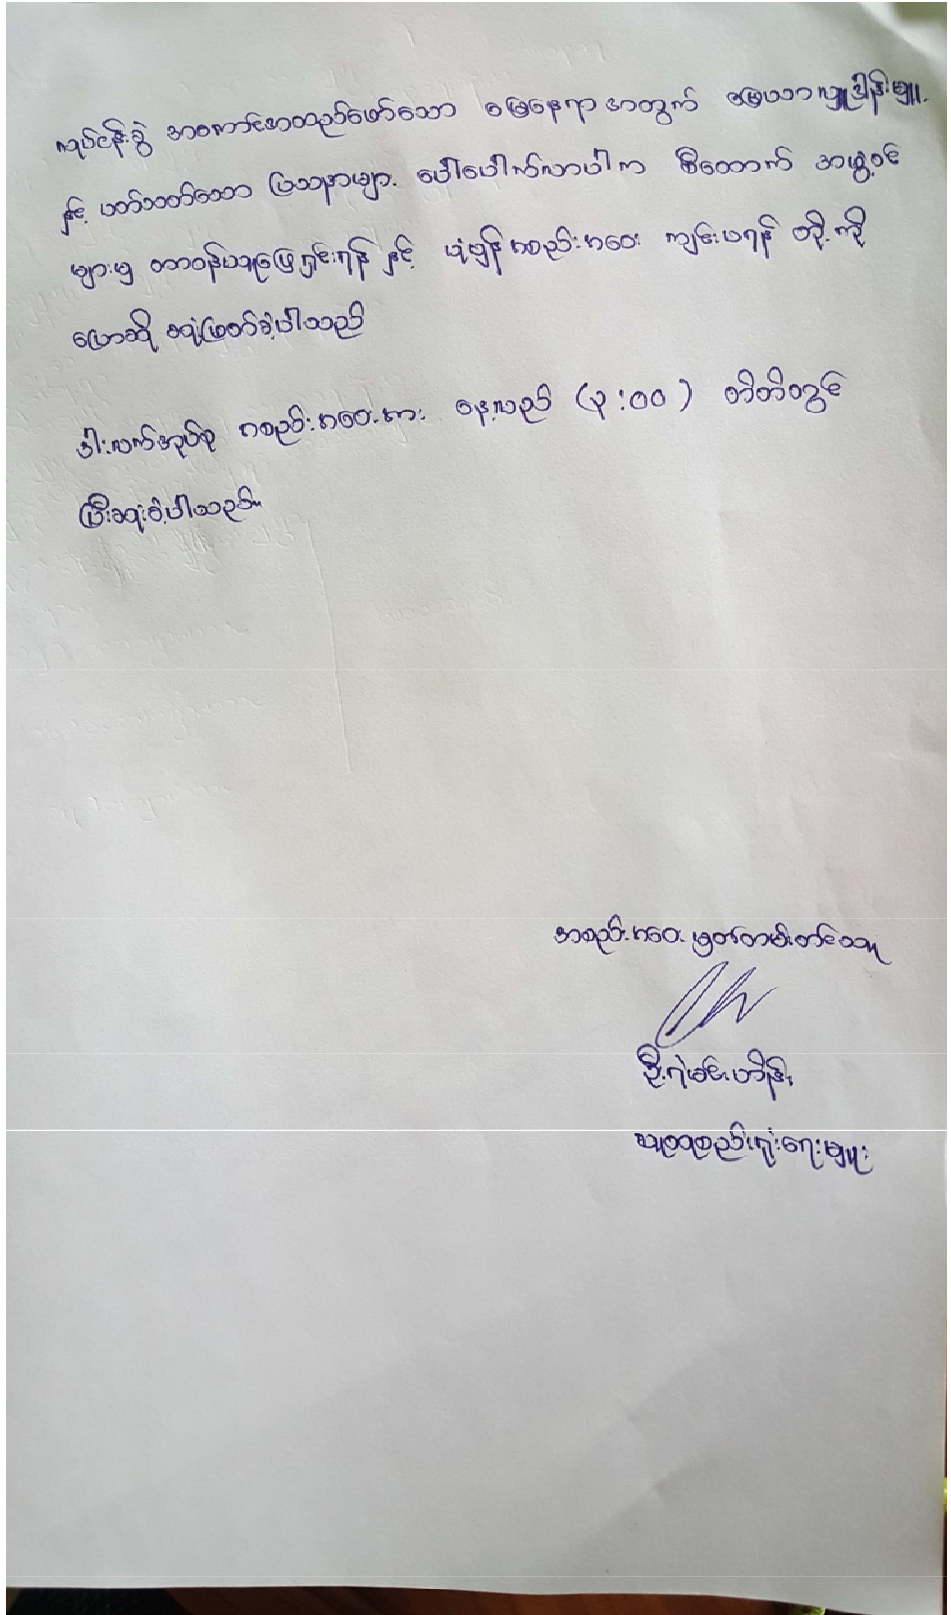 လုပ်ငန်းခွဲ အကောင်အထည်ဖော်သော မြေနေရာအတွက် မြေယာလှူဒါန်းမှု
နှင့် ပတ်သတ်သော ပြဿနာများ ပေါ်ပေါက်လာပါက စီထောက် အဖွဲ့ဝင်
များမှ တာဝန်ယူဖြေရှင်းရန် နှင့် ပုံမှန်အစည်းအဝေး ကျင်းပရန် တို့ကို
ပြောဆို ဆုံးဖြတ်ခဲ့ပါသည်
ဒါးလက်အုပ်စု အစည်းအဝေးအား နေ့လည် (၃:၀၀) တိတိတွင်
ပြီးဆုံးခဲ့ပါသည်။
အစည်းအဝေးမှတ်တမ်းတင်သူ
ဦးရဲမင်းဟိန်း
လူထုစည်းရုံးရေးမှူး